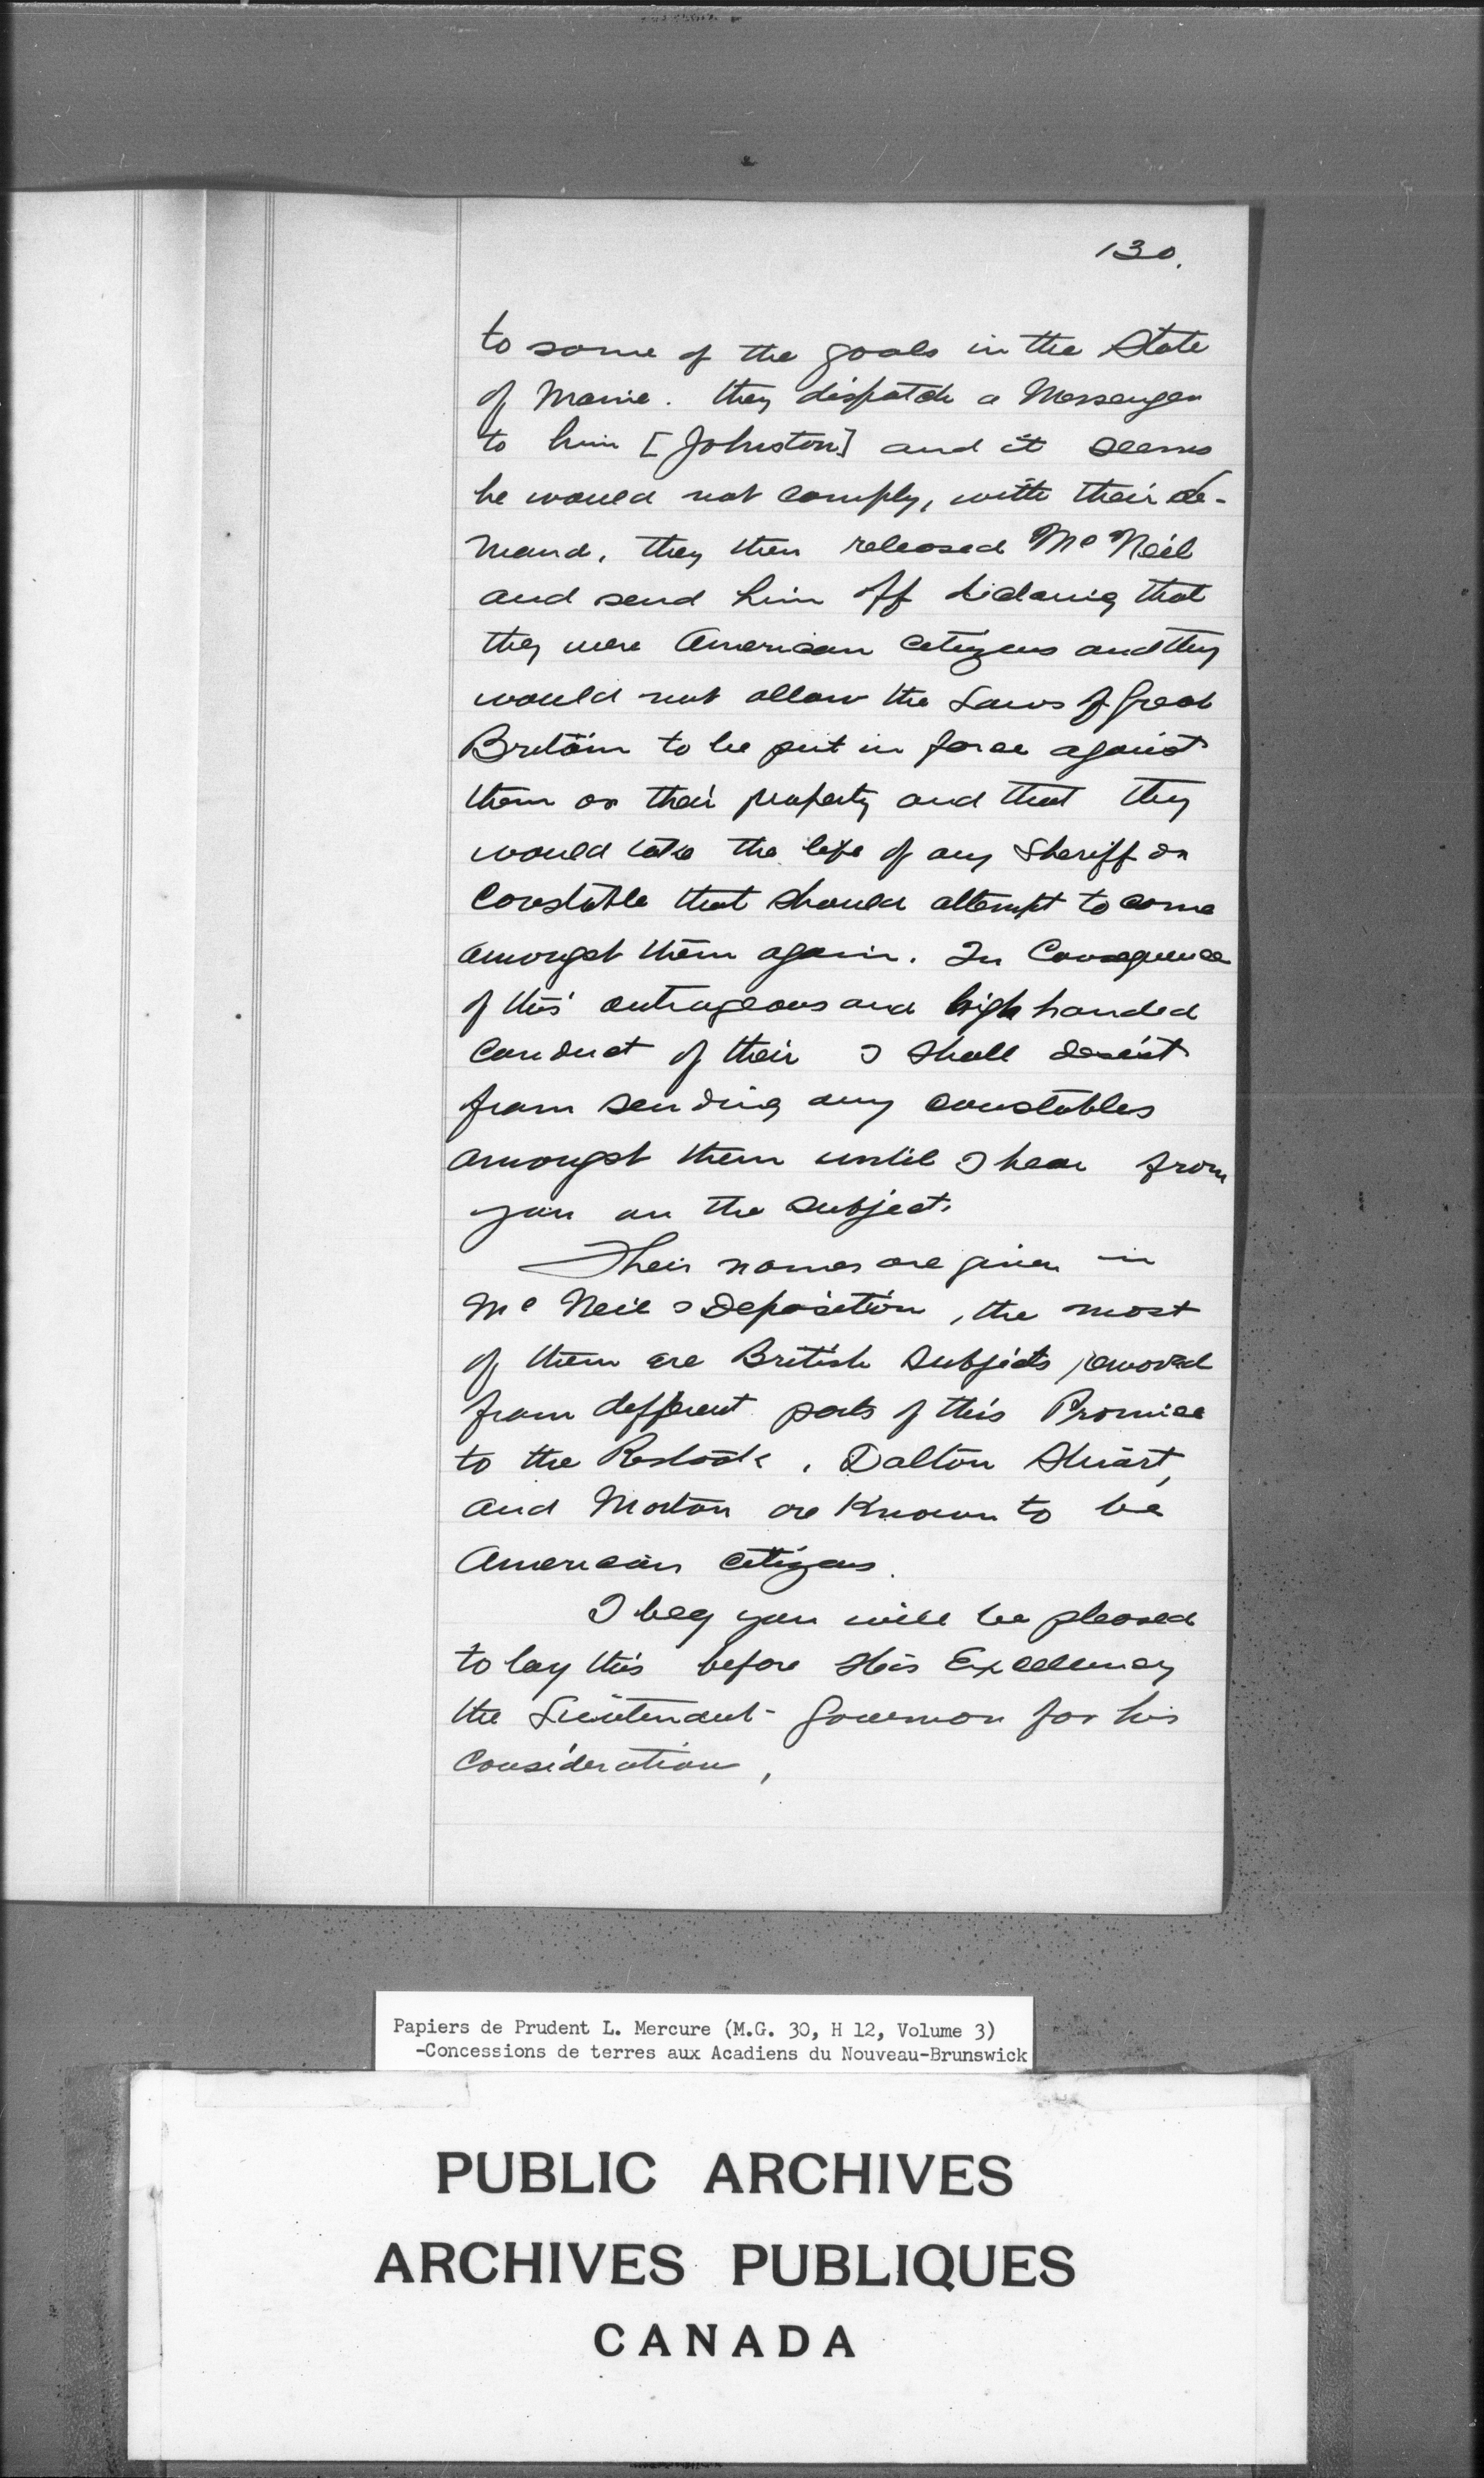 130.
to some of the goals in the State
of Maine. they dispatch a Messenger
to him [Johnston] and it seems
he would not comply, with their de-
mand, they then released Mc Neil
and send him off declaring that
they were American citizens and they
would not allow the Laws of Great
Britain to be put in force against
them or their property and that they
would take the life of any Sheriff or
Constable that should attempt to come
amongst them again. In Consequence
of this outrageous and high handed
Conduct of their I shall desist
from sending any constables
amongst them until I hear from
you on the subject.
Their names are given in
Mc Neil s Deposition, the most
of them are British Subjects removed
from different parts of this Province
to the Restook. Dalton Stuart,
and Morton are Known to be
American citizens.
I beg you will be pleased
to lay this before His Excellency
the Lieutenant-Governor for his
Consideration,
Papiers de Prudent L. Mercure (M.G. 30, H 12, Volume 3)
-Concessions de terres aux Acadiens du Nouveau-Brunswick
PUBLIC ARCHIVES
ARCHIVES PUBLIQUES
CANADA